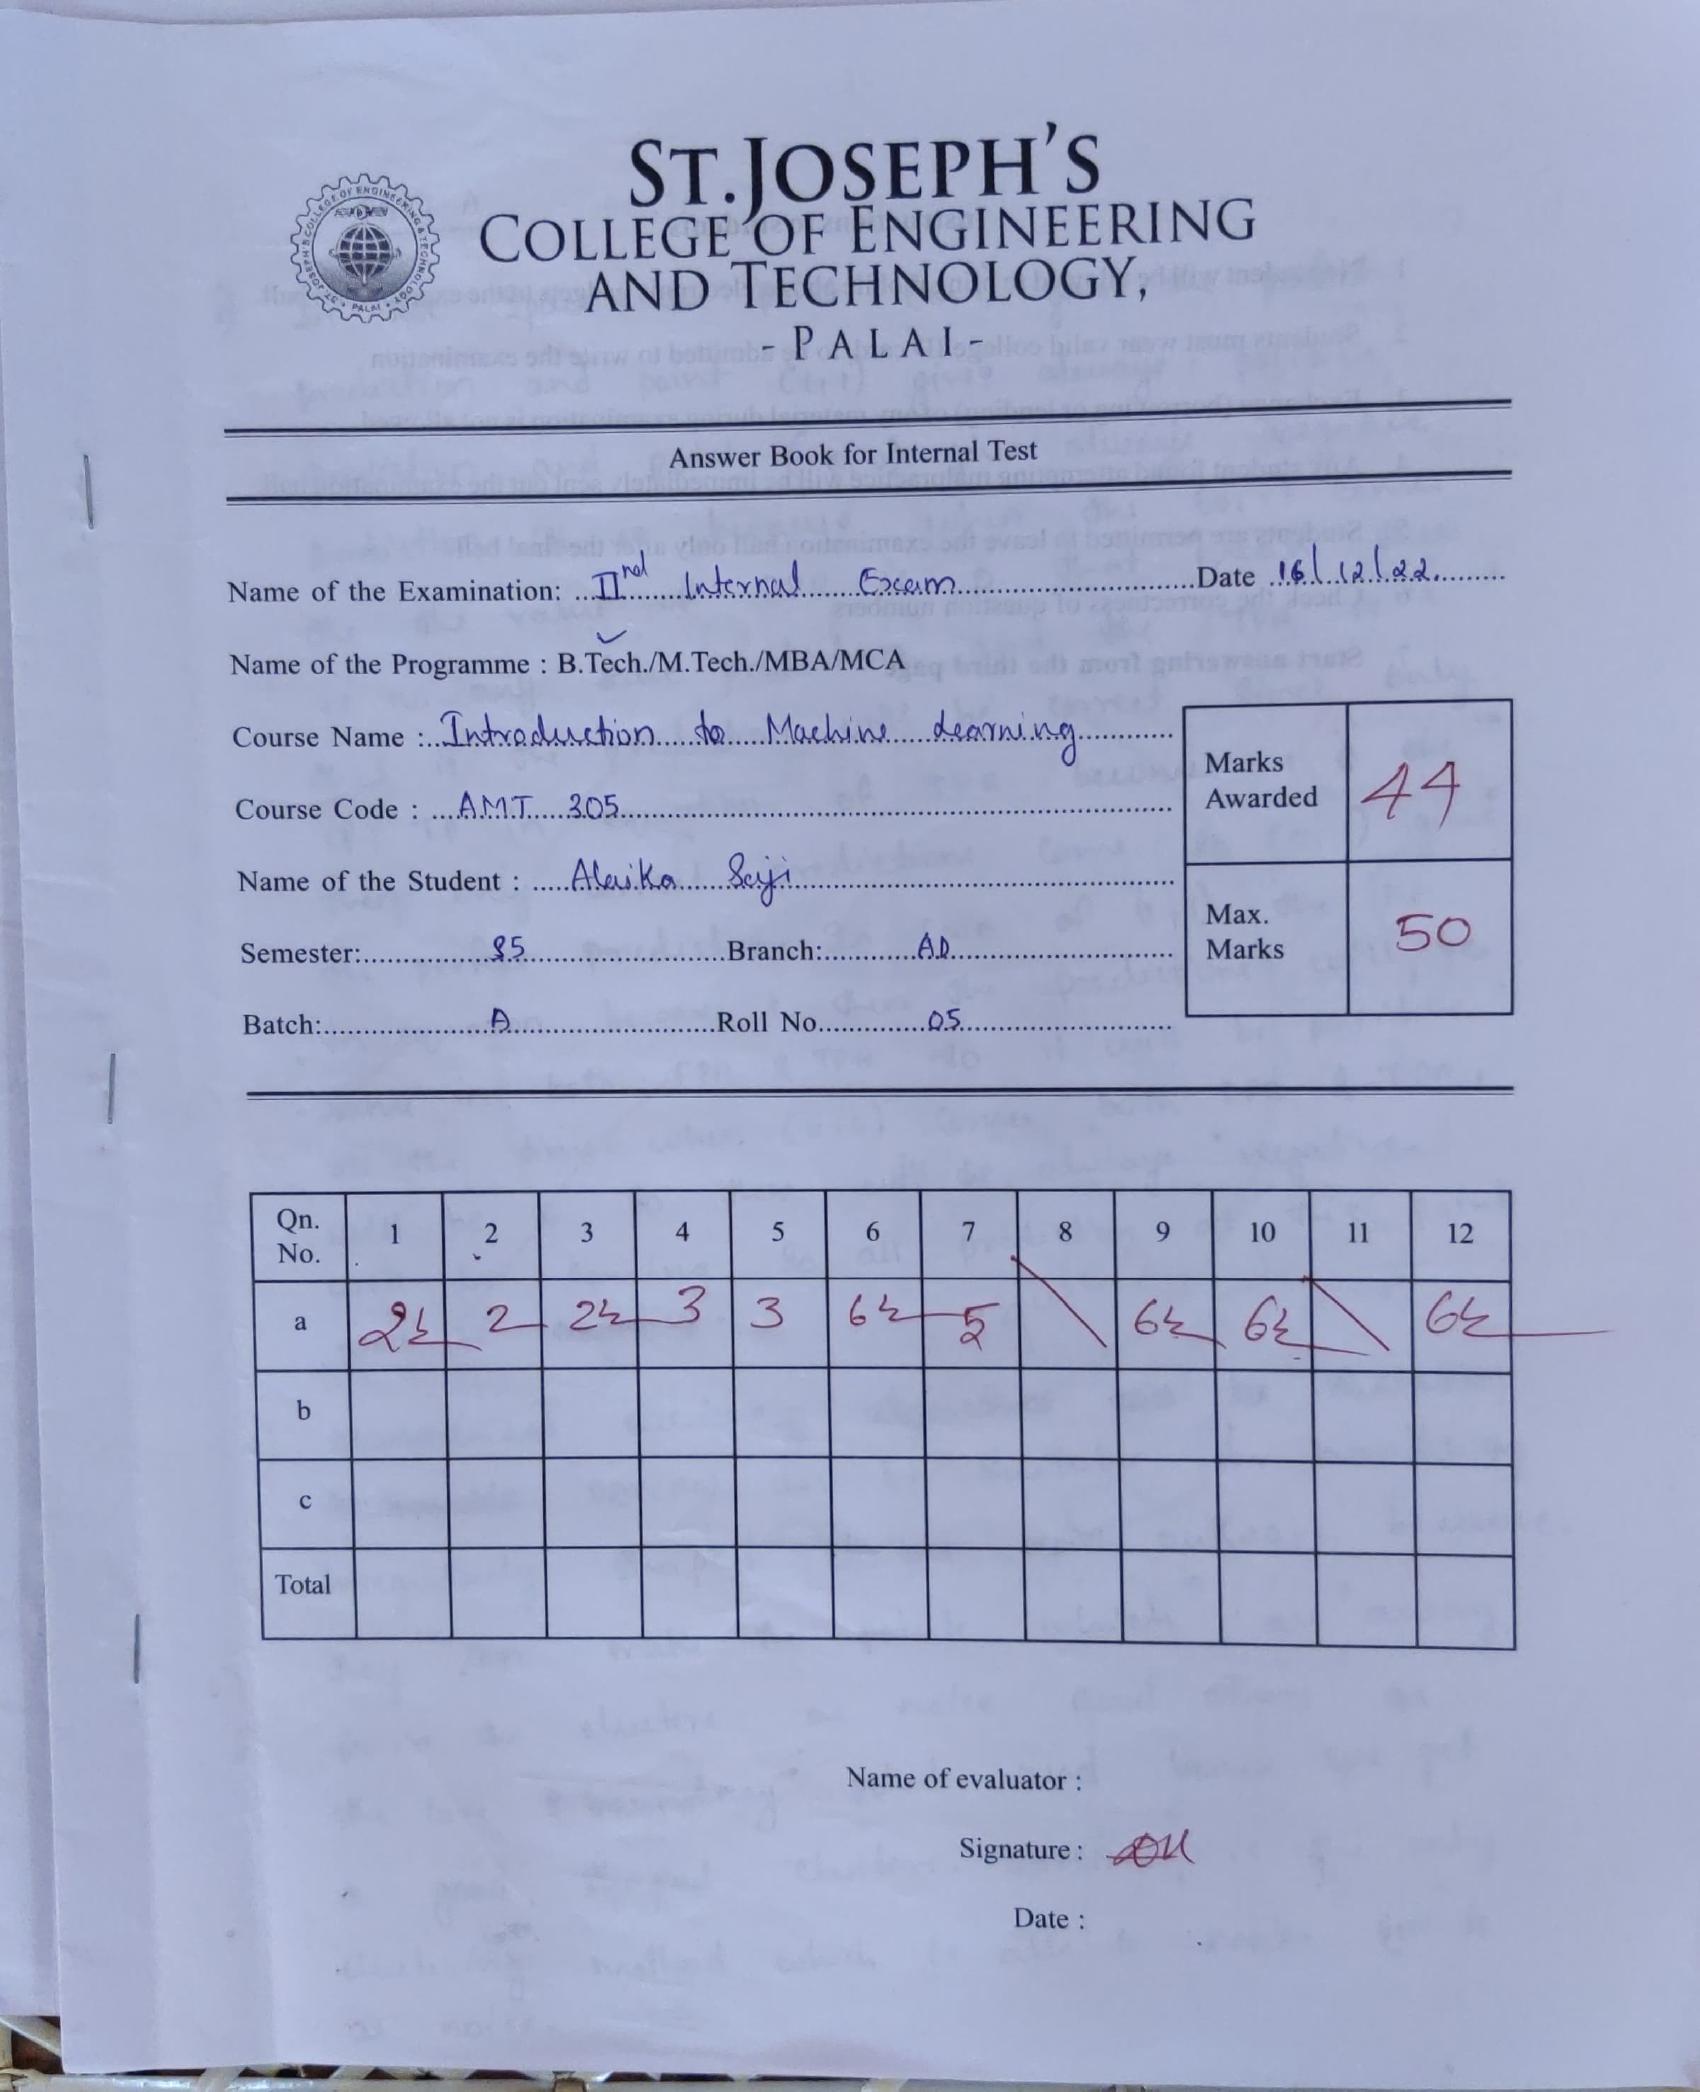 ST.JOSEPH'S
COLLEGE OF ENGINEERING
AND TECHNOLOGY,
- PALAI -
Answer Book for Internal Test
Name of the Examination: IInd Internal Exam Date 16/12/22
Name of the Programme : B.Tech./M.Tech./MBA/MCA
Course Name : Introduction to Machine Learning
Course Code : AMT 305
Name of the Student : Saji
Semester: S5 Branch: AD
Batch: A Roll No. 05
Marks Awarded 44
Max. Marks 50
Qn. No. 1 2 3 4 5 6 7 8 9 10 11 12
a 2½ 2 2½ 3 3 6½ 5 6½ 6½ 6½
b
c
Total
Name of evaluator :
Signature :
Date :